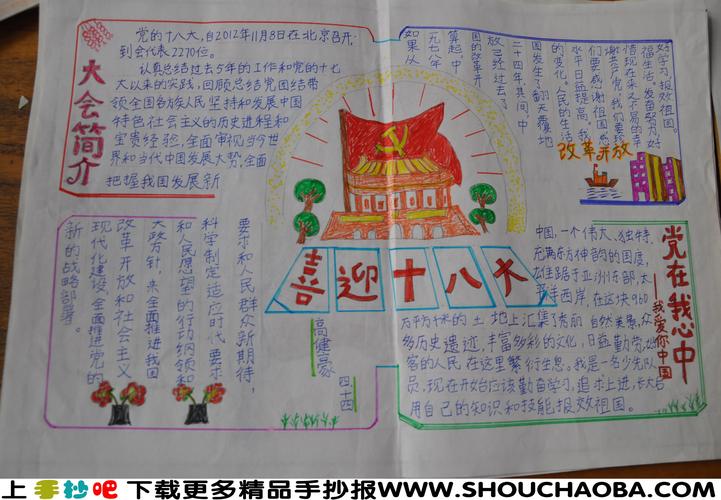 大会简介
党的十八大，自2012年11月8日在北京召开，
到会代表2270位。
认真总结过去5年的工作和党的十七
大以来的实践，回顾总结党团结带
领全国各族人民坚持和发展中国
特色社会主义的历史进程和
宝贵经验，全面审视当今世
界和当代中国发展大势，全面
把握我国发展新
要求和人民群众新期待，
科学制定适应时代要求
和人民愿望的行动纲领和
大政方针，来全面推进我国
改革开放和社会主义
现代化建设、全面推进党的
新的战略部署。
喜迎十八大
高健豪
四十四
改革开放
如果从
一九七八年
算起中
国的改革开
放已经过去了
二十四年其间，中
国发生了翻天覆地
的变化。人民的生活
水平日益提高。我
们要感谢祖国感
谢共产党，我们要珍
惜现在来之不易的幸
福生活，发奋努力好
好学习，报效祖国。
党在我心中
——我爱你中国
中国，一个伟大、独特、
充满东方神韵的国度，
在住踞于亚洲东部，太
平洋西岸，在这块960
万平方千米的土地上汇集了秀丽自然美景，众
多历史遗迹，丰富多彩的文化，日益勤劳
的人民在这里繁衍生息。我是一名少先队
员，现在开始应该勤奋学习，追求上进，长大后
用自己的知识和技能，报效祖国。
上手抄吧下载更多精品手抄报WWW.SHOUCHAOBA.COM!